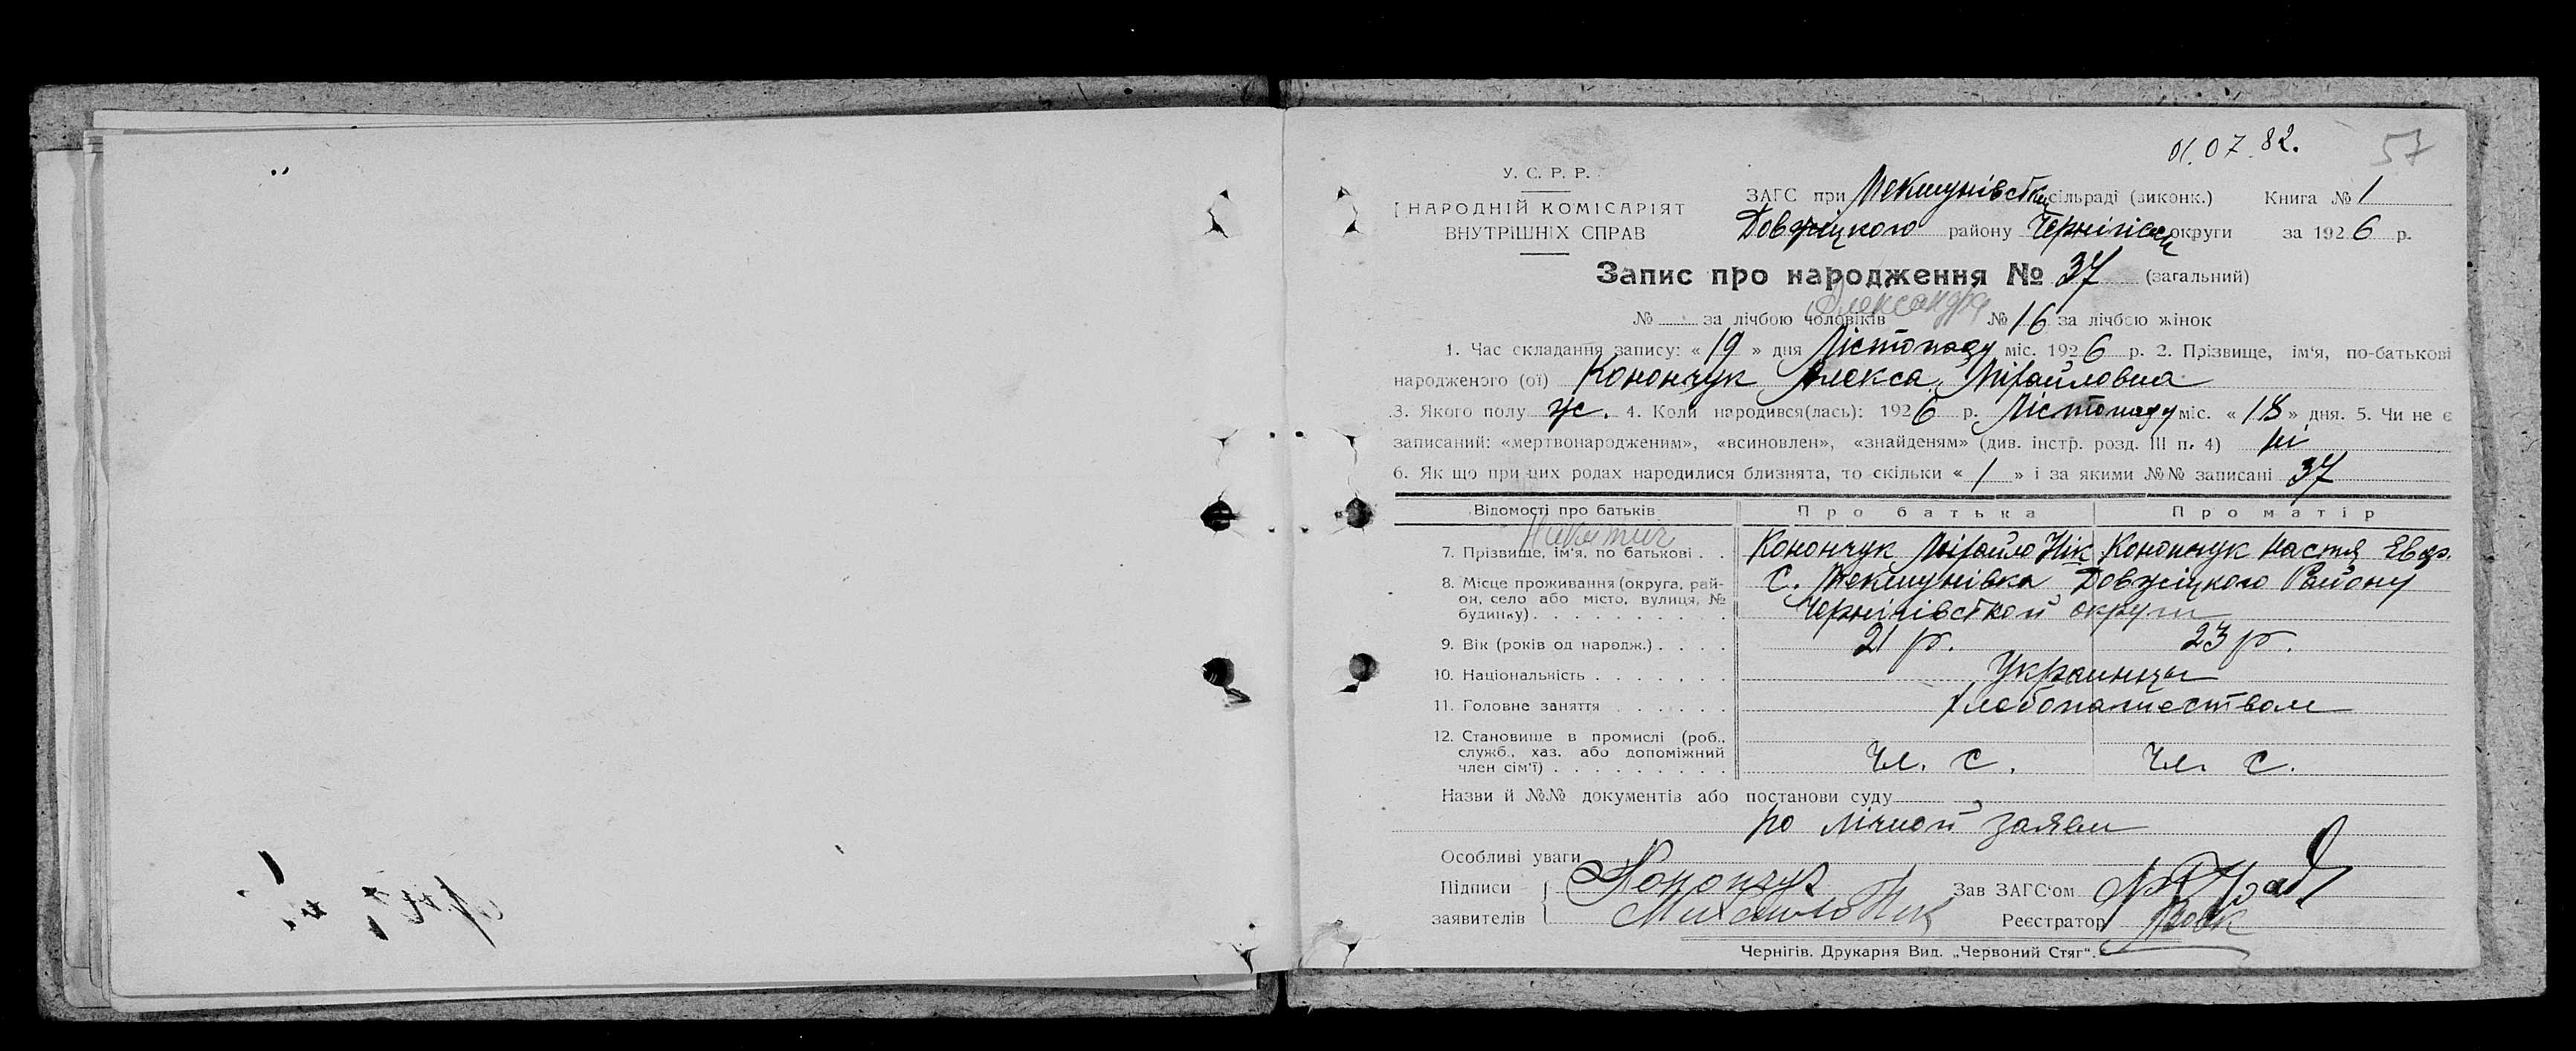 01.07.82.
57
У. С. Р. Р.
НАРОДНІЙ КОМІСАРІЯТ
ВНУТРІШНІХ СПРАВ
ЗАГС при Мекшунівсткий сільраді (виконк.) Книга № 1
Довжицкого району Чернігівск округи за 1926 р.
Запис про народження № 37 (загальний)
Александра
№ за лічбою чоловіків № 16 за лічбою жінок
1. Час складання запису: « 19 » дня Лістопаду міс. 1926 р. 2. Прізвище, ім'я, по-батькові
народженого (ої) Конончук Алекса Міхайловна
3. Якого полу ж. 4. Коли народився(лась): 1926 р. Лістопаду міс. « 18 » дня. 5. Чи не є
записаний: «мертвонародженим», «всиновлен», «знайденям» (див. інстр. розд. III п. 4) ні
6. Як що при цих родах народилися близнята, то скільки « 1 » і за якими №№ записані 37
Відомості про батьків Про батька Про матір
Никитич
7. Прізвище, ім'я, по батькові . . Конончук Міхайло Нік Конончук Настя Евдр.
8. Місце проживання (округа, рай-
он, село або місто, вулиця, №
будинку) . . . . . . . . . .
С. Мекшунівка Довжіцкого Району
Чернігівсткой округи
9. Вік (років од народж.) . . . . 21 р. 23 р.
10. Національність . . . . . . . Украинцы
11. Головне заняття . . . . . . Хлебопашеством
12. Становище в промислі (роб.,
служб., хаз. або допоміжний
член сім'ї) . . . . . . . . . чл. с. чл. с.
Назви й №№ документів або постанови суду
по лічной заяви
Особливі уваги
Підписи Конончук Зав ЗАГС'ом
заявителів Михайло Ник Реєстратор
Чернігів. Друкарня Вид. „Червоний Стяг".